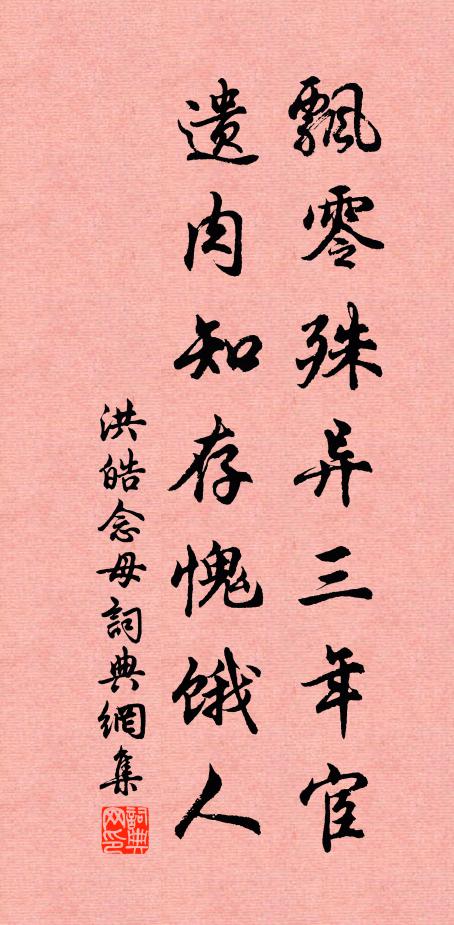 飄零殊异三年宦
遺肉知存愧餓人
洪皓念母詞典網集
詞典网印